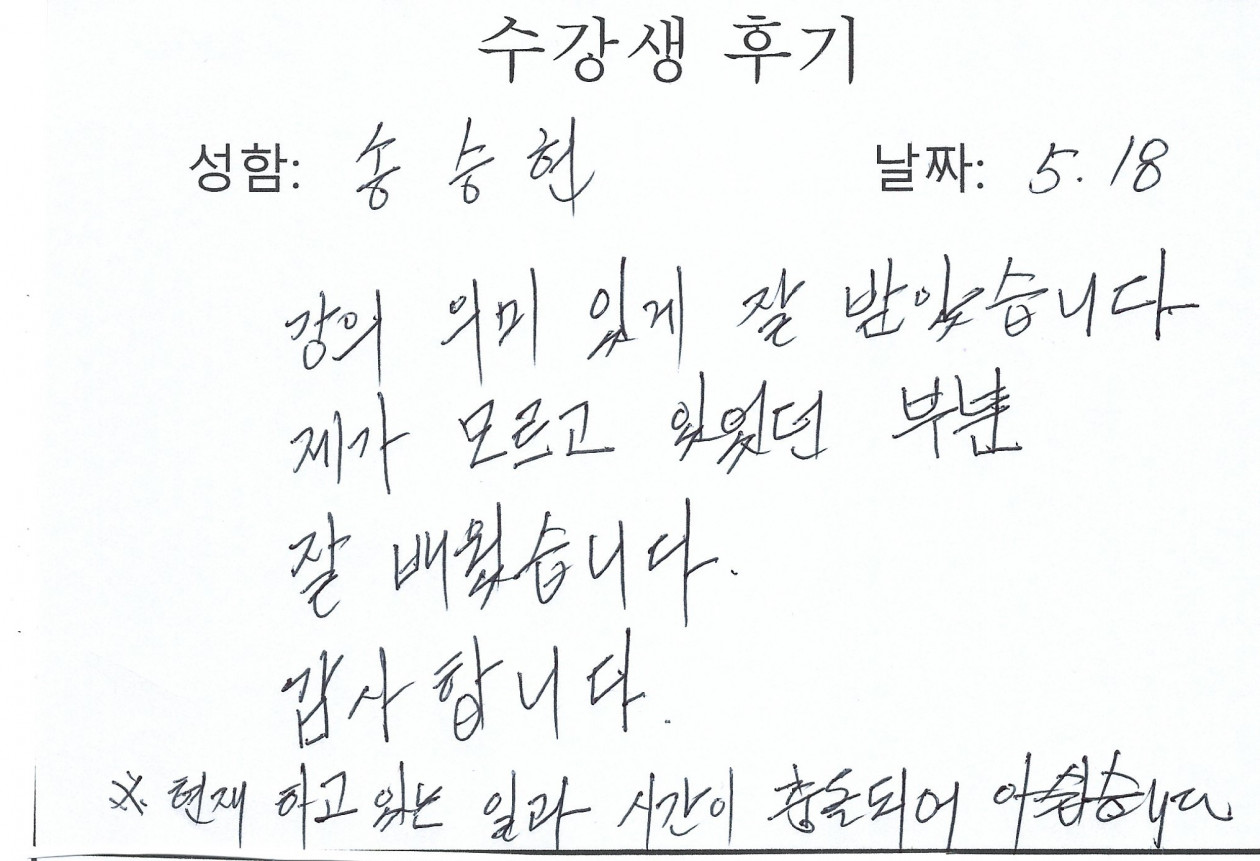 수강생 후기
성함: 송승헌 날짜: 5. 18
강의 의미 있게 잘 받았습니다
제가 모르고 있었던 부분
잘 배웠습니다.
감사합니다.
※ 현재 하고 있는 일과 시간이 충돌되어 아쉽습니다